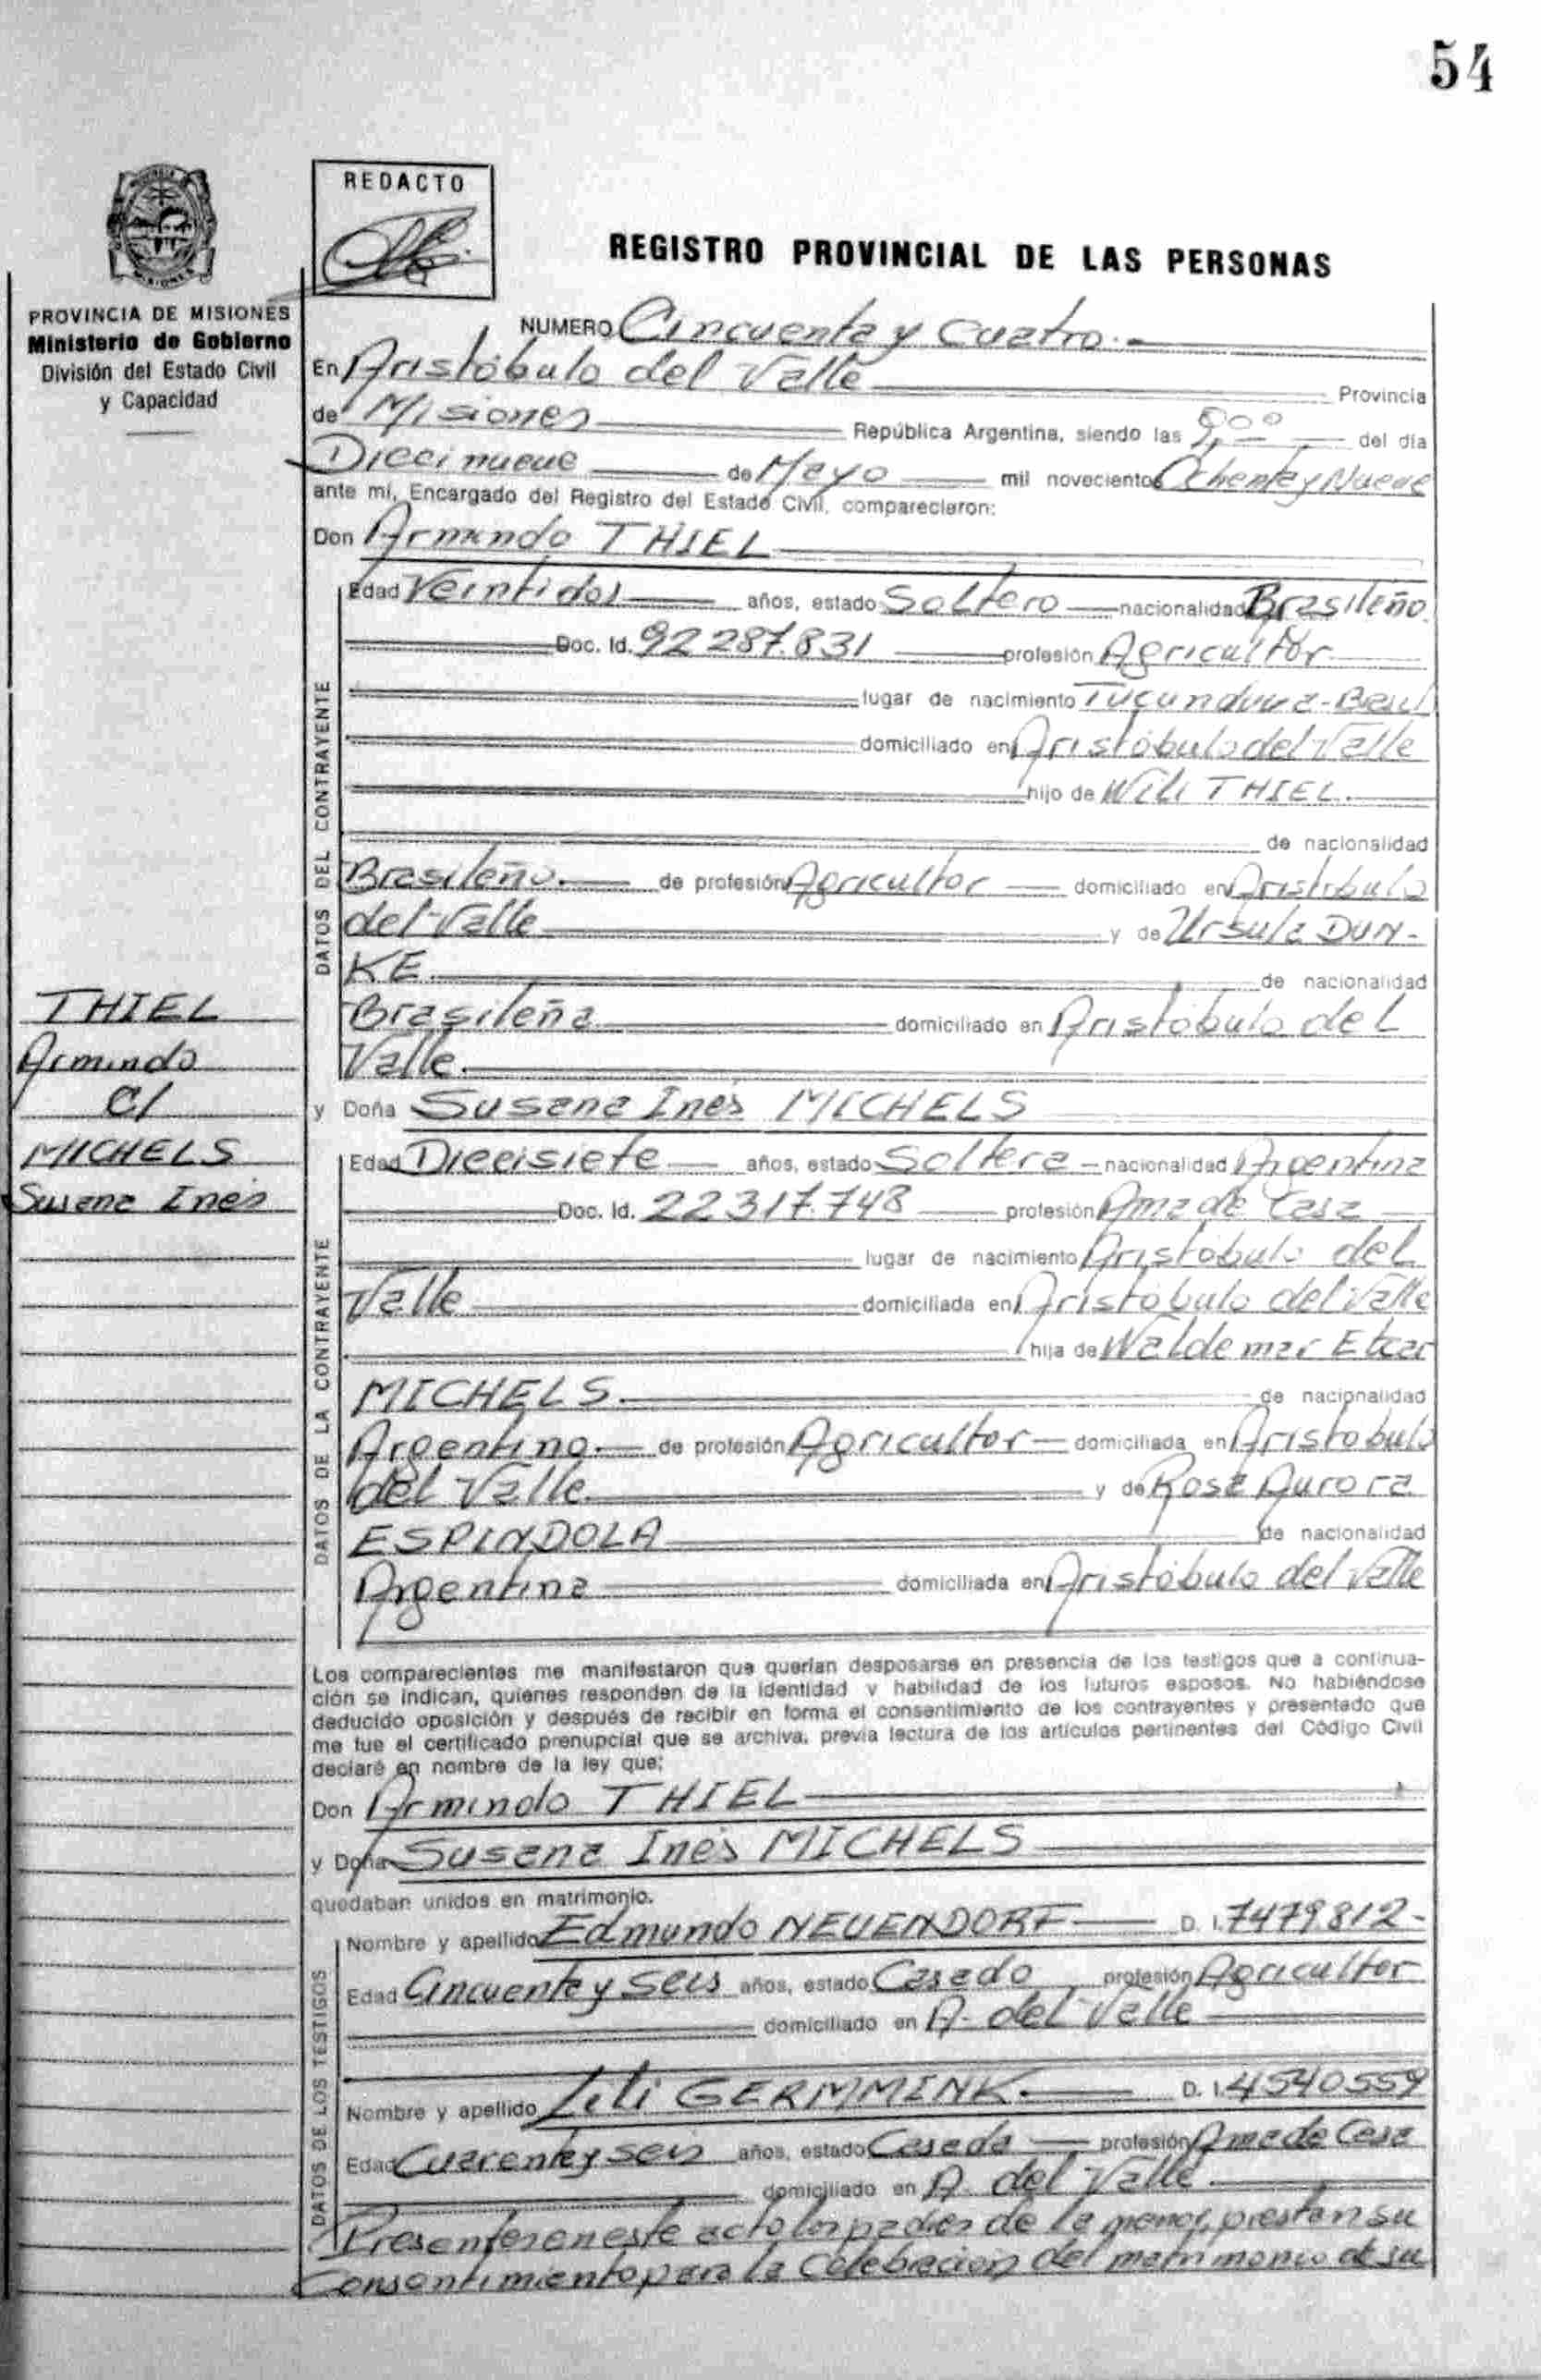 54
REDACTO
REGISTRO PROVINCIAL DE LAS PERSONAS
PROVINCIA DE MISIONES
Ministerio de Gobierno
División del Estado Civil
y Capacidad
NUMERO Cincuenta y cuatro.-
En Aristóbulo del Valle Provincia
de Misiones República Argentina, siendo las 9,00 del día
Diecinueve de Mayo mil novecientos Ochenta y Nueve
ante mí, Encargado del Registro del Estado Civil, comparecieron:
Don Armindo THIEL
DATOS DEL CONTRAYENTE
Edad Veintidos años, estado Soltero nacionalidad Brasileño.
Doc. Id. 92287.831 profesión Agricultor
lugar de nacimiento Tucunduva-Brasil
domiciliado en Aristóbulo del Valle
hijo de Wili THIEL.
de nacionalidad
Brasileño. de profesión Agricultor domiciliado en Aristobulo
del Valle y de Ursula DUN-
KE de nacionalidad
Brasileña domiciliado en Aristóbulo del
Valle.
THIEL
Armindo
C/
MICHELS
Susana Inés
y Doña Susana Inés MICHELS
DATOS DE LA CONTRAYENTE
Edad Diecisiete años, estado Soltera nacionalidad Argentina
Doc. Id. 22317.748 profesión Ama de Casa
lugar de nacimiento Aristóbulo del
Valle domiciliada en Aristobulo del Valle
hija de Waldemar
MICHELS. de nacionalidad
Argentino. de profesión Agricultor domiciliada en Aristobulo
del Valle. y de Rosa Aurora
ESPINDOLA de nacionalidad
Argentina domiciliada en Aristóbulo del Valle
Los comparecientes me manifestaron que querían desposarse en presencia de los testigos que a continua-
ción se indican, quienes responden de la identidad y habilidad de los futuros esposos. No habiéndose
deducido oposición y después de recibir en forma el consentimiento de los contrayentes y presentado que
me fue el certificado prenupcial que se archiva, previa lectura de los artículos pertinentes del Código Civil
declaré en nombre de la ley que:
Don Armindo THIEL
y Doña Susana Inés MICHELS
quedaban unidos en matrimonio.
DATOS DE LOS TESTIGOS
Nombre y apellido Edmundo NEUENDORF D. I. 7479812-
Edad Cincuenta y seis años, estado Casado profesión Agricultor
domiciliado en A. del Valle
Nombre y apellido Lili GERMMINK. D. I. 4540559
Edad Cuarenta y seis años, estado Casada profesión Ama de Casa
domiciliado en A. del Valle.
Presentes en este acto los padres de la menor, prestan su
Consentimiento para la Celebración del matrimonio de su